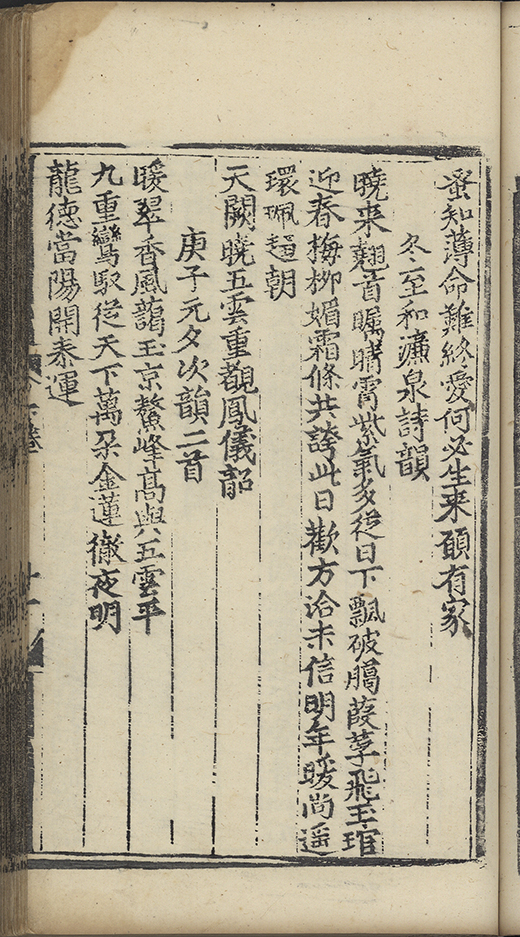 蚤知薄命難終愛何必生来願有家
冬至和濂泉詩韻
曉来翹首矚晴霄紫氣多從日下飄破臈葭莩飛玉琯
迎春梅柳媚霜條共誇此日歡方洽未信明年暖尚遥
環珮趨朝
天闕曉五雲重覩鳳儀韶
庚子元夕次韻二首
暖翠香風藹玉京鰲峰高與五雲平
九重鸞馭從天下萬朶金蓮徹夜明
龍德當陽開泰運